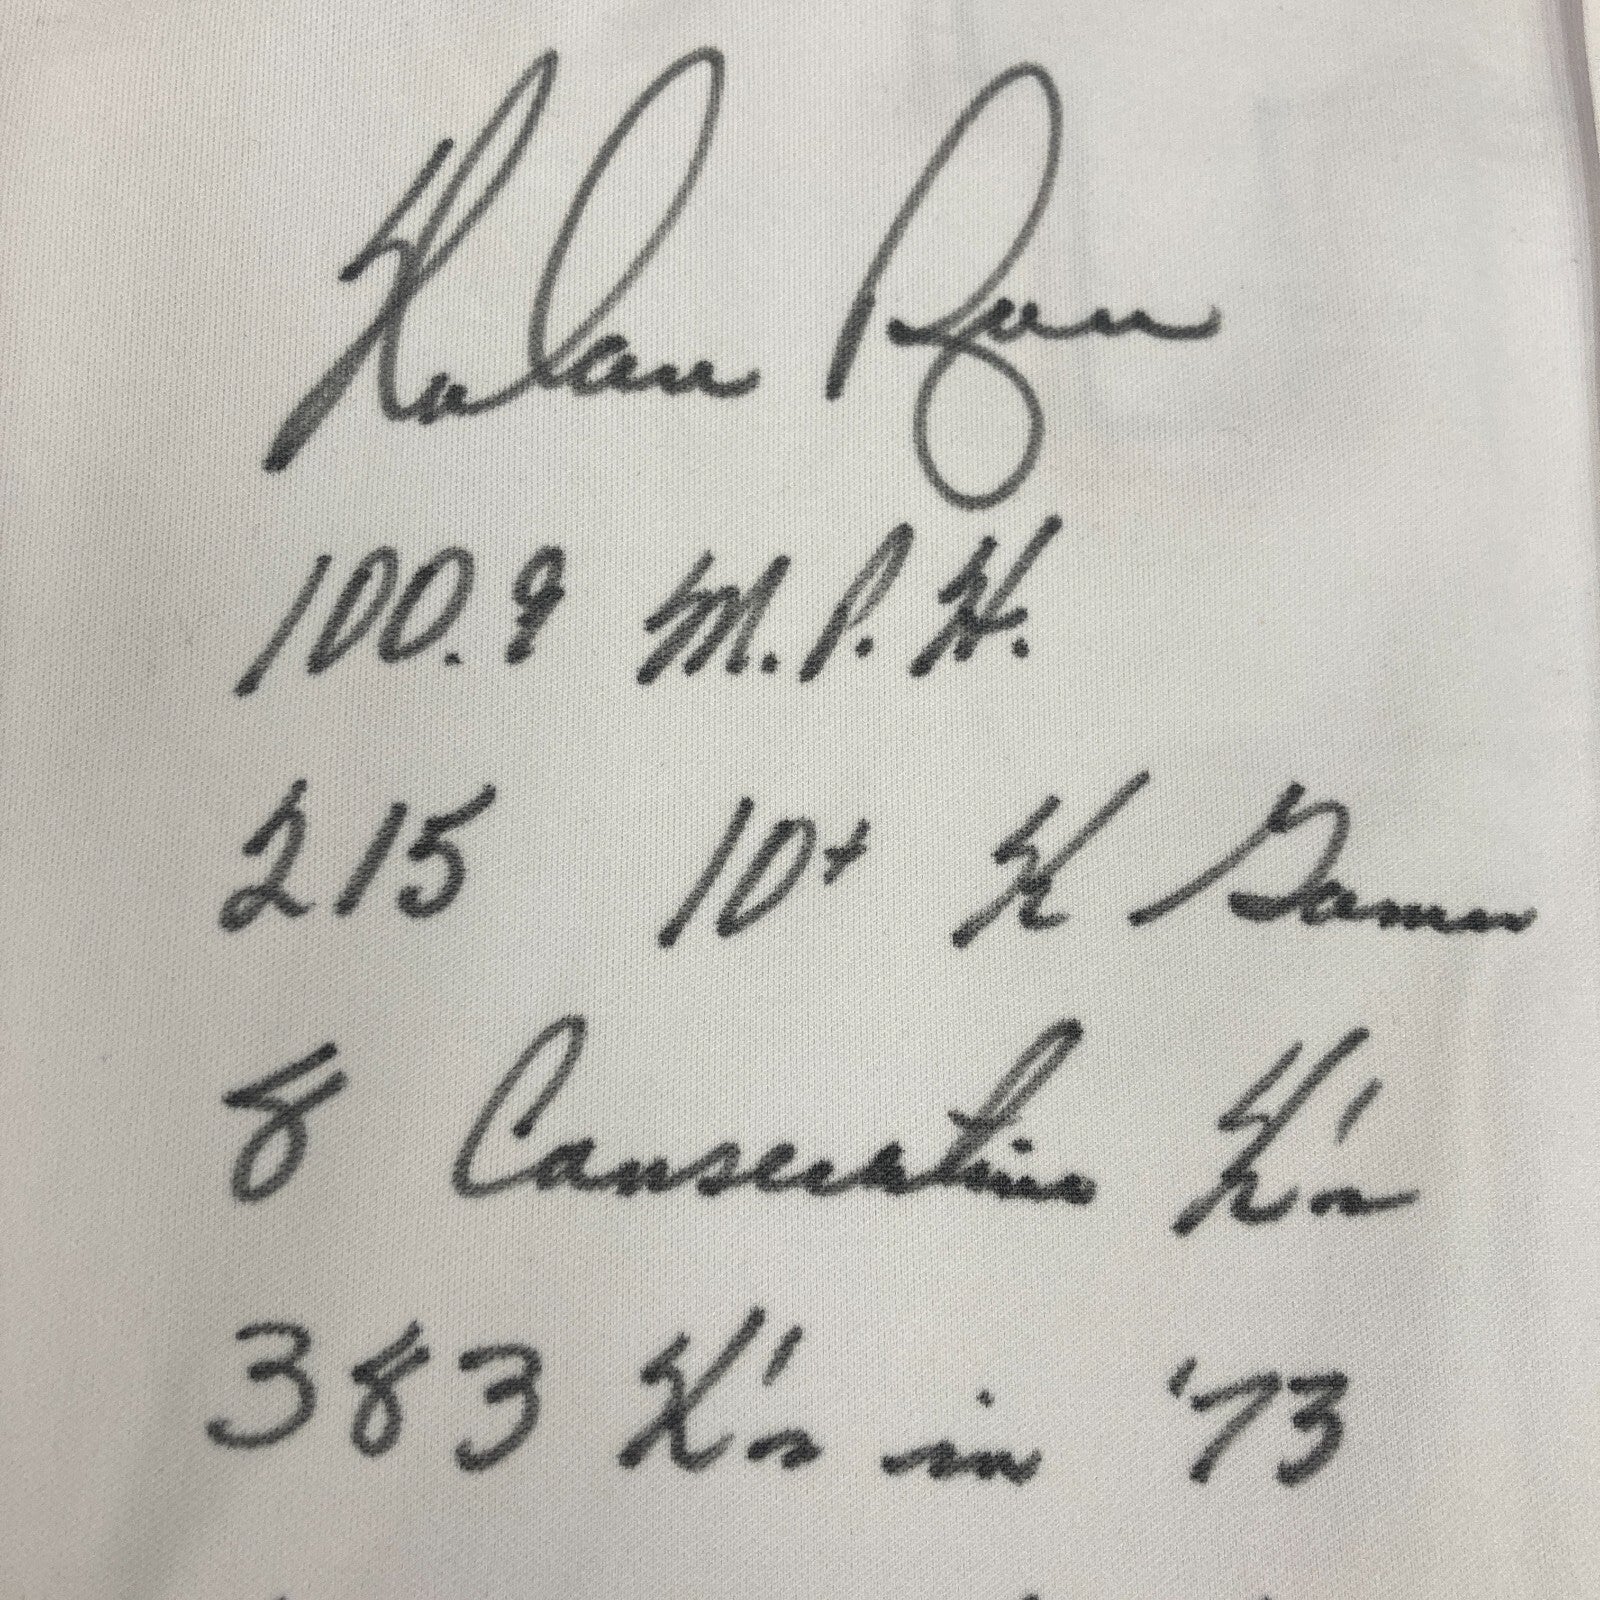 Nolan Ryan
100.9 M.P.H.
215 10+ K Games
8 Consecutive K's
383 K's in '73